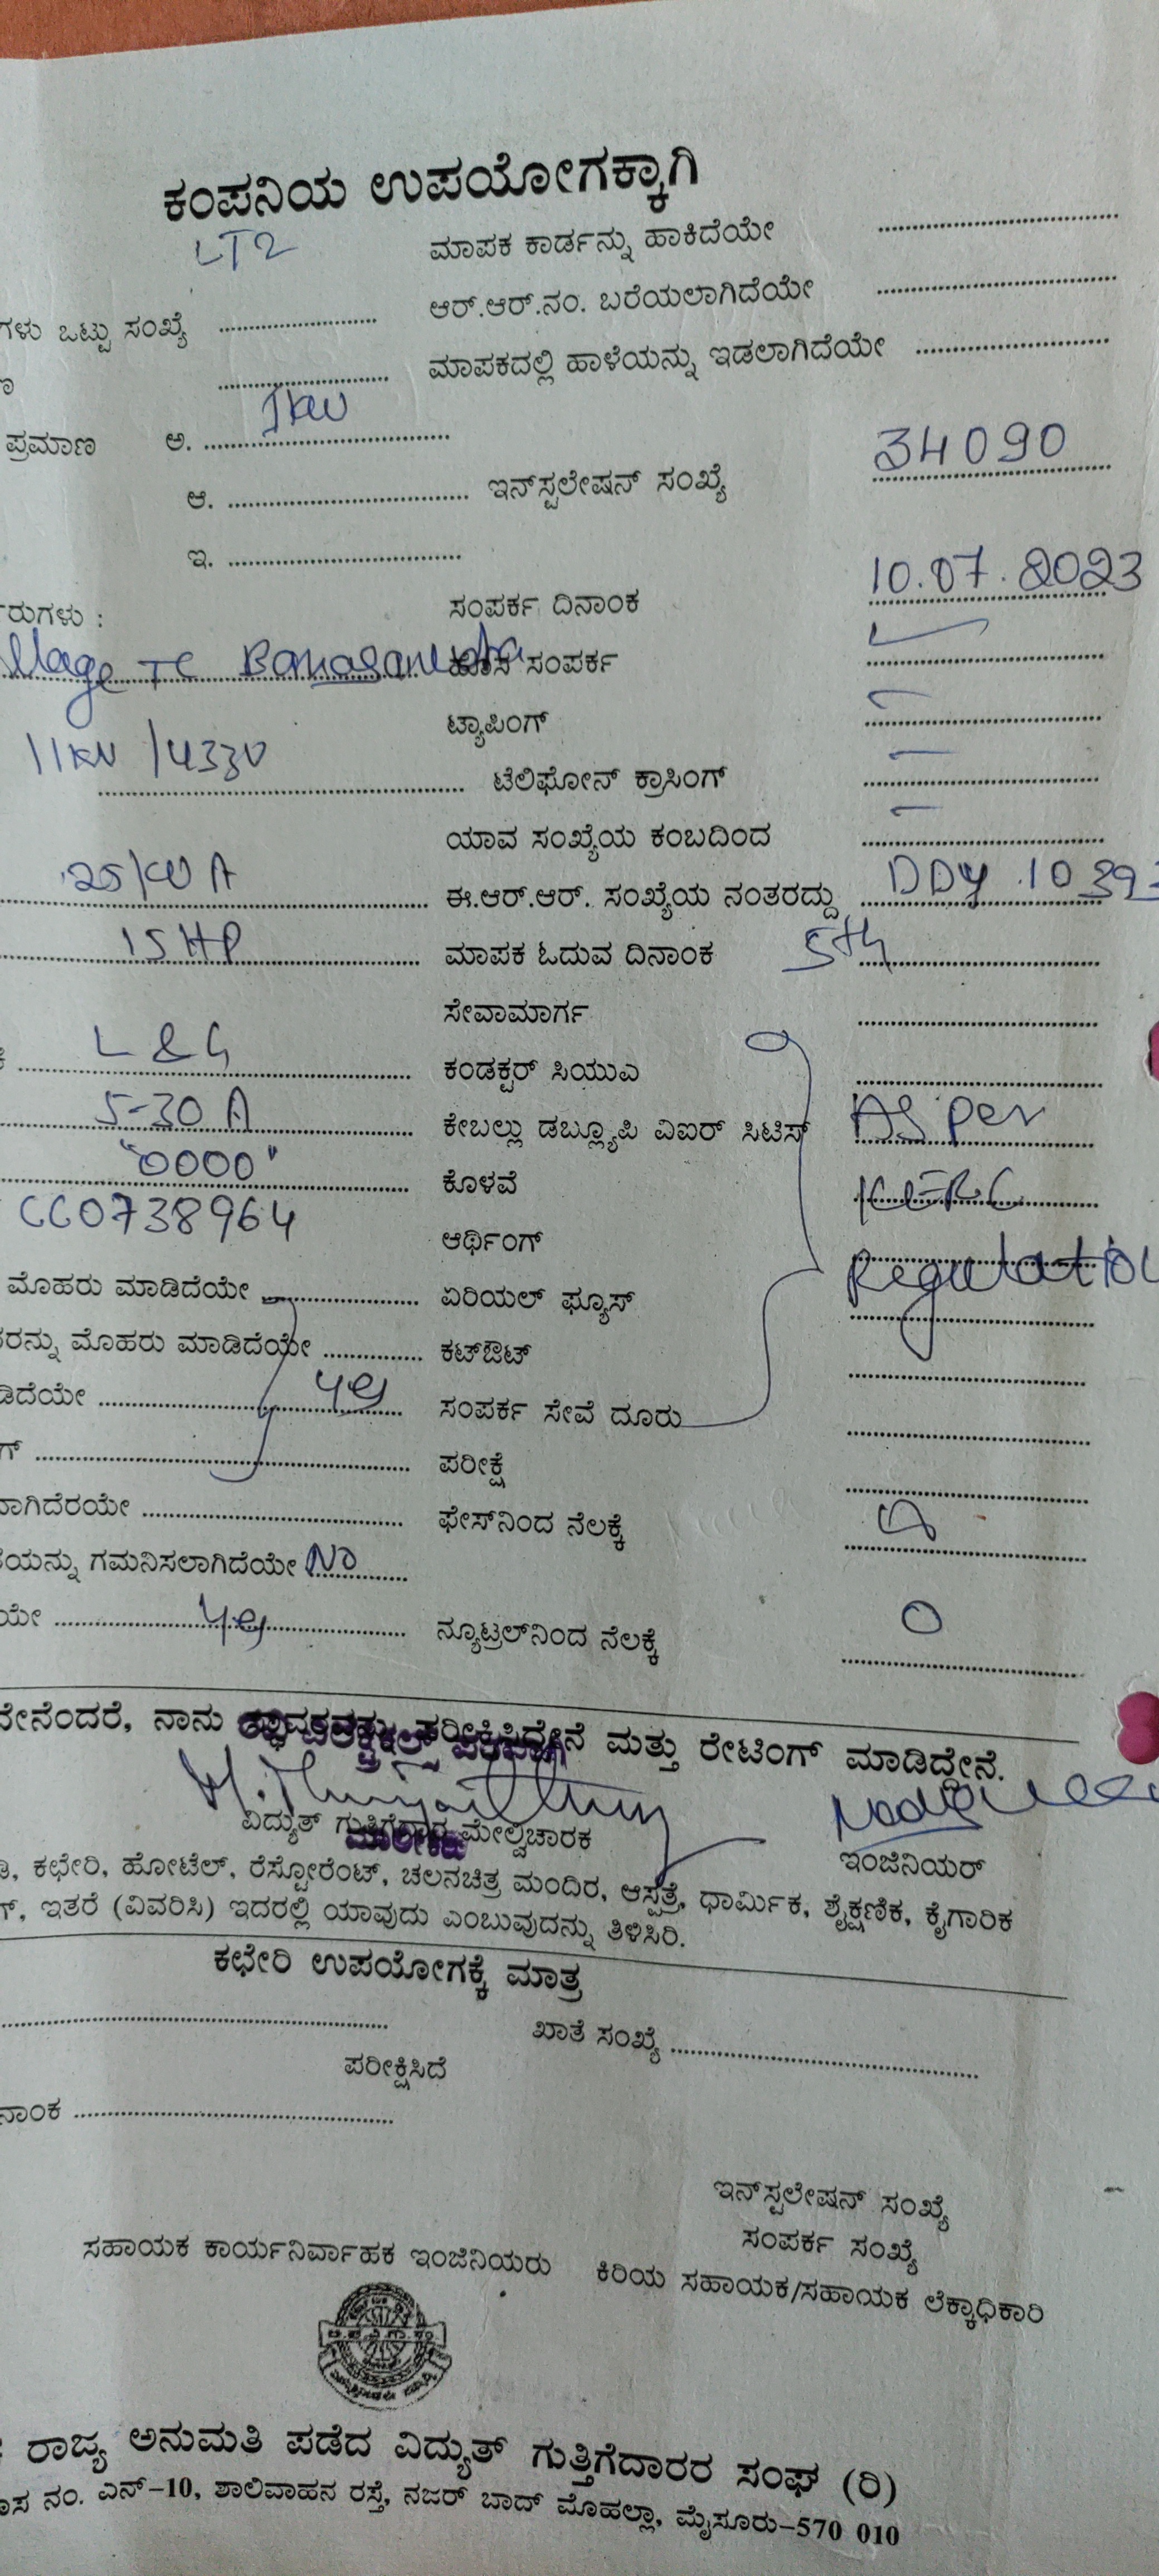 ಕಂಪನಿಯ ಉಪಯೋಗಕ್ಕಾಗಿ
LT2 ಮಾಪಕ ಕಾರ್ಡನ್ನು ಹಾಕಿದೆಯೇ
ಗಳು ಒಟ್ಟು ಸಂಖ್ಯೆ ಆರ್.ಆರ್.ನಂ. ಬರೆಯಲಾಗಿದೆಯೇ
ಮಾಪಕದಲ್ಲಿ ಹಾಳೆಯನ್ನು ಇಡಲಾಗಿದೆಯೇ
ಪ್ರಮಾಣ ಅ. 1KW
ಆ. ಇನ್‌ಸ್ಟಲೇಷನ್ ಸಂಖ್ಯೆ 34090
ಇ.
ರುಗಳು : ಸಂಪರ್ಕ ದಿನಾಂಕ 10.07.2023
llage TC ಸಂಪರ್ಕ
ಟ್ಯಾಪಿಂಗ್ –
11KV /433V ಟೆಲಿಫೋನ್ ಕ್ರಾಸಿಂಗ್ –
ಯಾವ ಸಂಖ್ಯೆಯ ಕಂಬದಿಂದ –
ಈ.ಆರ್.ಆರ್. ಸಂಖ್ಯೆಯ ನಂತರದ್ದು DDY 1039
15HP ಮಾಪಕ ಓದುವ ದಿನಾಂಕ 5th
ಸೇವಾಮಾರ್ಗ
L & G ಕಂಡಕ್ಟರ್ ಸಿಯುಎ
5-30 A ಕೇಬಲ್ಲು ಡಬ್ಲ್ಯೂಪಿ ವಿಐರ್ ಸಿಟಿಸ್ As per
"0000" ಕೊಳವೆ KERC
CC0738964 ಆರ್ಥಿಂಗ್ Regulation
ಮೊಹರು ಮಾಡಿದೆಯೇ ಏರಿಯಲ್ ಫ್ಯೂಸ್
ರನ್ನು ಮೊಹರು ಮಾಡಿದೆಯೇ ಕಟ್‌ಔಟ್
ಡಿದೆಯೇ yes ಸಂಪರ್ಕ ಸೇವೆ ದೂರು
ಗ್ ಪರೀಕ್ಷೆ
ಫೇಸ್‌ನಿಂದ ನೆಲಕ್ಕೆ
ಯನ್ನು ಗಮನಿಸಲಾಗಿದೆಯೇ No
ಯೇ yes ನ್ಯೂಟ್ರಲ್‌ನಿಂದ ನೆಲಕ್ಕೆ 0
ನೇನೆಂದರೆ, ನಾನು ಪರೀಕ್ಷಿಸಿದ್ದೇನೆ ಮತ್ತು ರೇಟಿಂಗ್ ಮಾಡಿದ್ದೇನೆ.
ವಿದ್ಯುತ್ ಗುತ್ತಿಗೆದಾರ ಮೇಲ್ವಿಚಾರಕ ಇಂಜಿನಿಯರ್
ಕಛೇರಿ, ಹೋಟೆಲ್, ರೆಸ್ಟೋರೆಂಟ್, ಚಲನಚಿತ್ರ ಮಂದಿರ, ಆಸ್ಪತ್ರೆ, ಧಾರ್ಮಿಕ, ಶೈಕ್ಷಣಿಕ, ಕೈಗಾರಿಕ
ಗ್, ಇತರೆ (ವಿವರಿಸಿ) ಇದರಲ್ಲಿ ಯಾವುದು ಎಂಬುವುದನ್ನು ತಿಳಿಸಿರಿ.
ಕಛೇರಿ ಉಪಯೋಗಕ್ಕೆ ಮಾತ್ರ
ಖಾತೆ ಸಂಖ್ಯೆ
ಪರೀಕ್ಷಿಸಿದೆ
ನಾಂಕ
ಇನ್‌ಸ್ಟಲೇಷನ್ ಸಂಖ್ಯೆ
ಸಂಪರ್ಕ ಸಂಖ್ಯೆ
ಸಹಾಯಕ ಕಾರ್ಯನಿರ್ವಾಹಕ ಇಂಜಿನಿಯರು ಕಿರಿಯ ಸಹಾಯಕ/ಸಹಾಯಕ ಲೆಕ್ಕಾಧಿಕಾರಿ
ರಾಜ್ಯ ಅನುಮತಿ ಪಡೆದ ವಿದ್ಯುತ್ ಗುತ್ತಿಗೆದಾರರ ಸಂಘ (ರಿ)
ನಂ. ಎನ್-10, ಶಾಲಿವಾಹನ ರಸ್ತೆ, ನಜರ್ ಬಾದ್ ಮೊಹಲ್ಲಾ, ಮೈಸೂರು-570 010